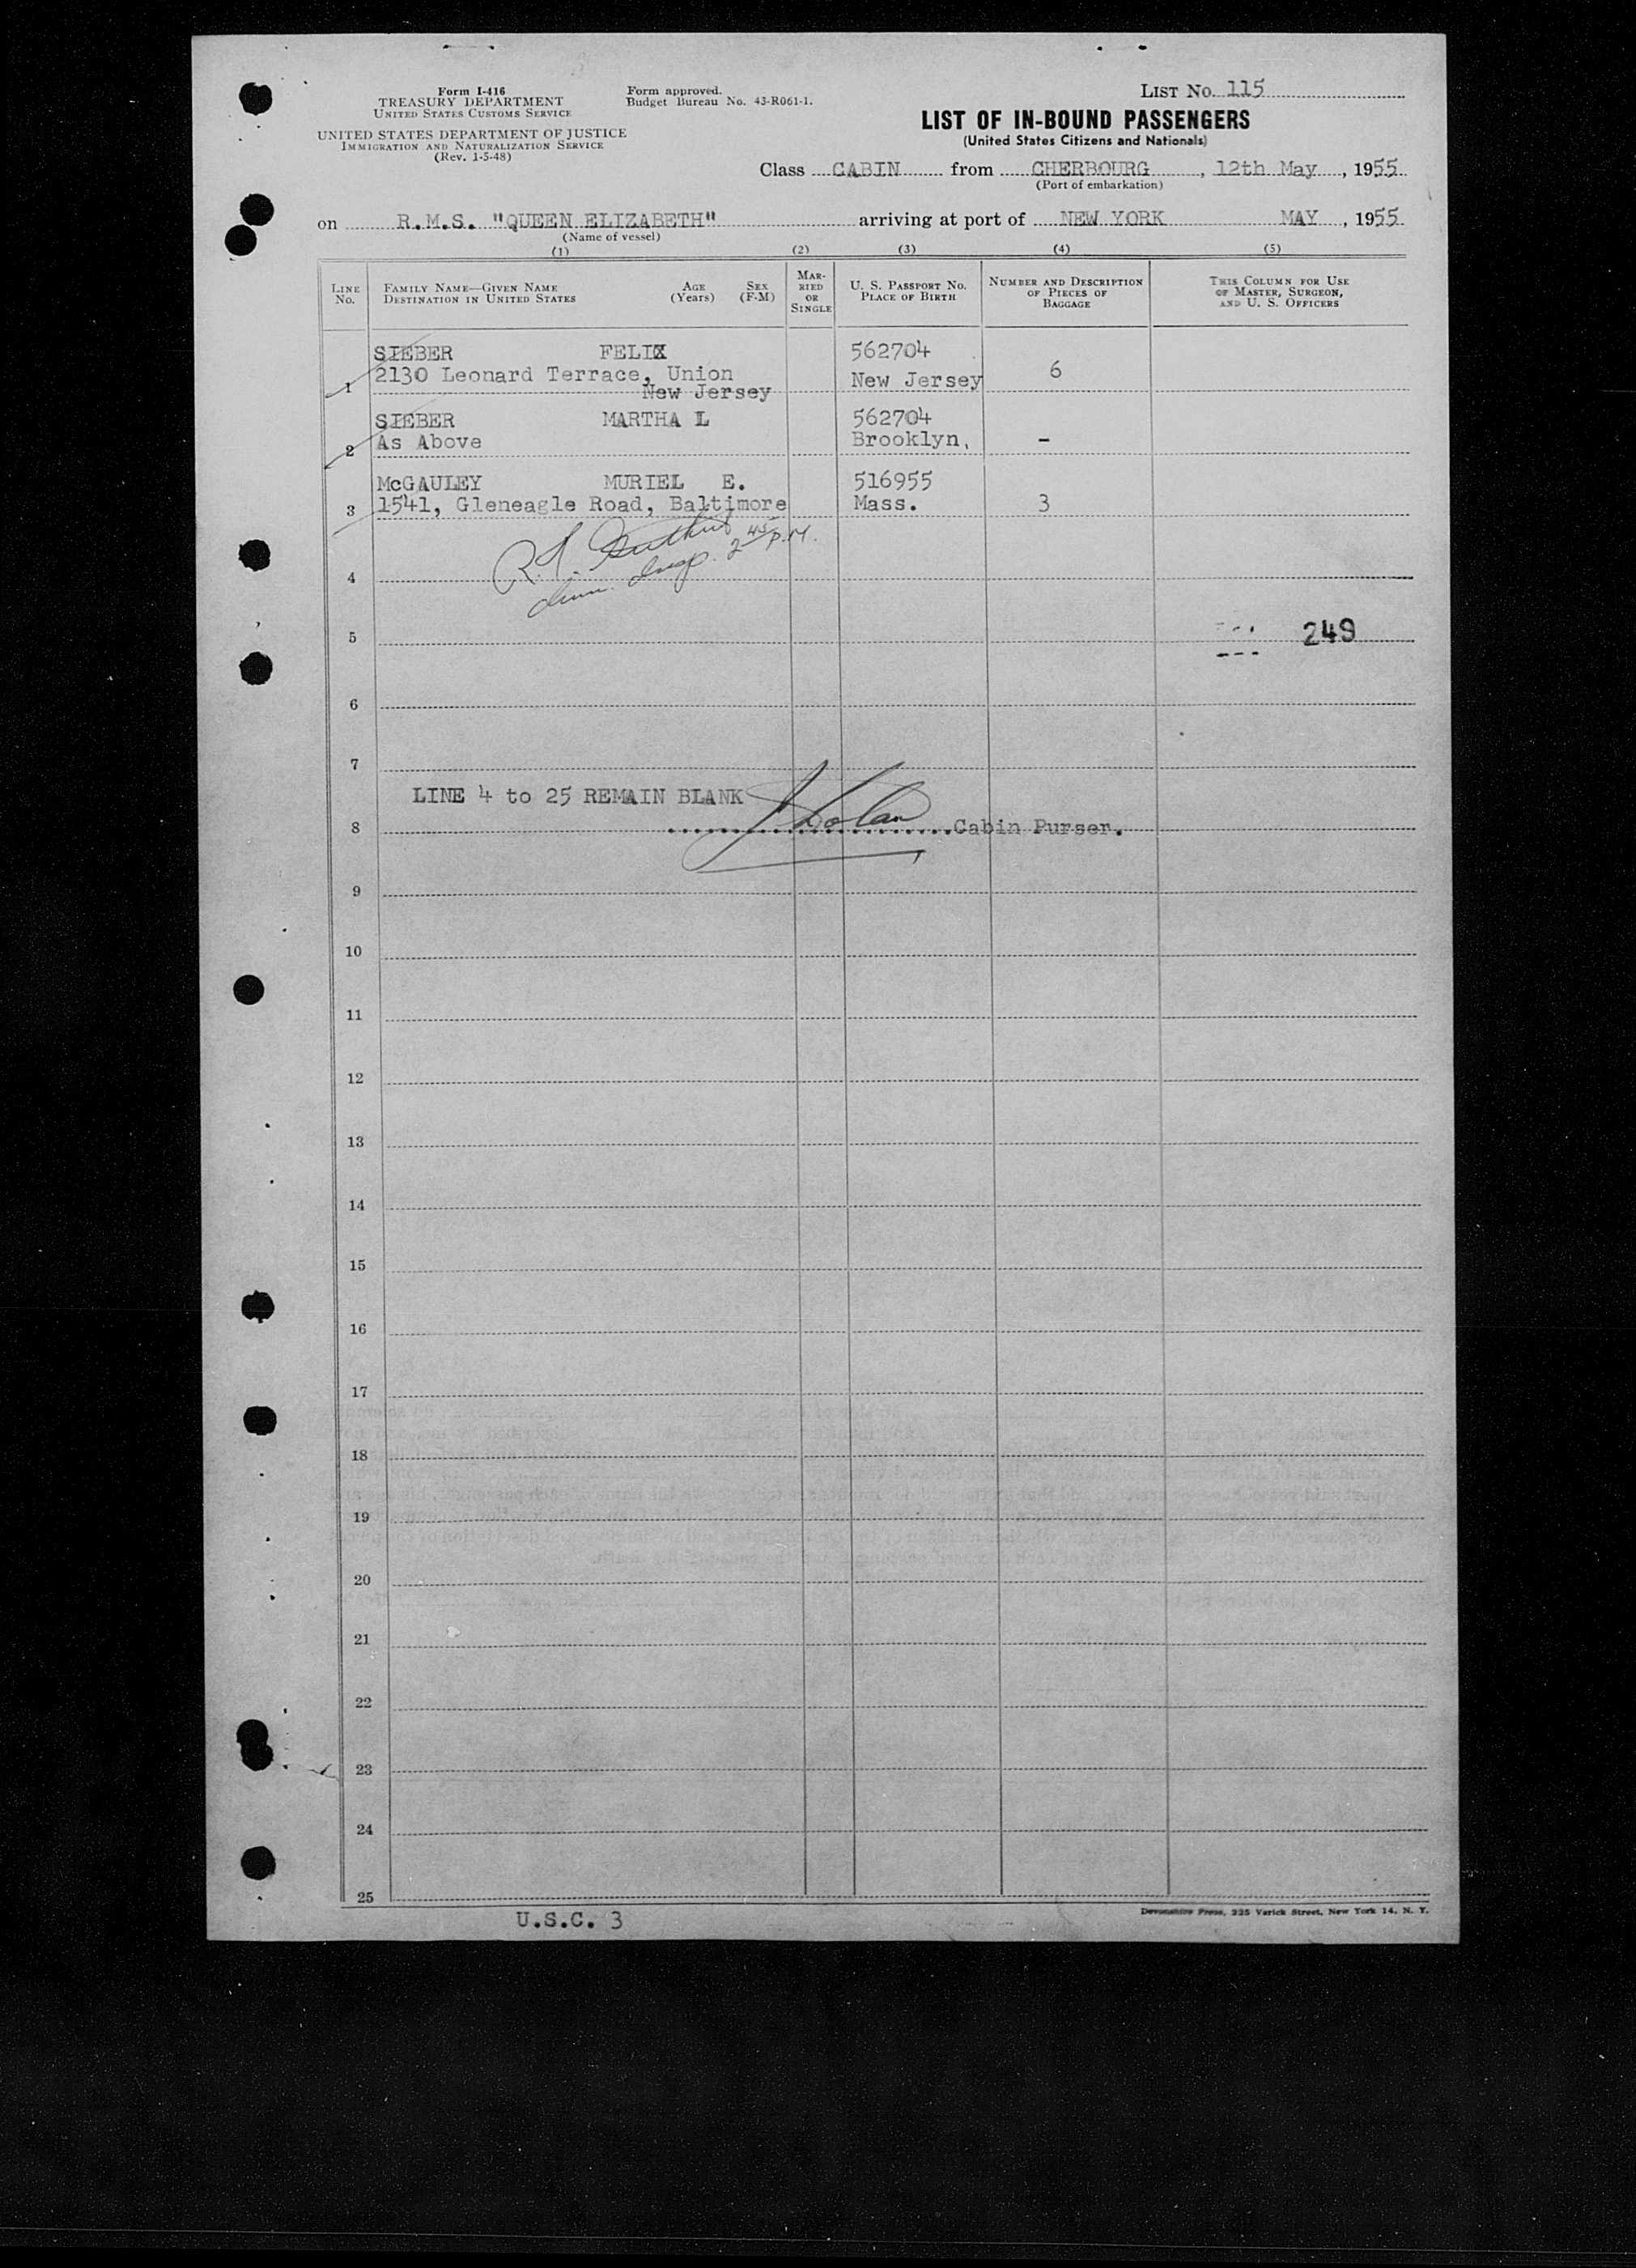 Form I-416
TREASURY DEPARTMENT
UNITED STATES CUSTOMS SERVICE
UNITED STATES DEPARTMENT OF JUSTICE
IMMIGRATION AND NATURALIZATION SERVICE
(Rev. 1-5-48)
Form approved.
Budget Bureau No. 43-R061-1.
LIST No. 115
LIST OF IN-BOUND PASSENGERS
(United States Citizens and Nationals)
Class CABIN from CHERBOURG, 12th May, 1955
(Port of embarkation)
on R.M.S. "QUEEN ELIZABETH" arriving at port of NEW YORK MAY, 1955
(Name of vessel)
(1) (2) (3) (4) (5)
LINE No. FAMILY NAME—GIVEN NAME DESTINATION IN UNITED STATES AGE (Years) SEX (F-M) MARRIED OR SINGLE U. S. PASSPORT NO. PLACE OF BIRTH NUMBER AND DESCRIPTION OF PIECES OF BAGGAGE THIS COLUMN FOR USE OF MASTER, SURGEON, AND U. S. OFFICERS
SIEBER FELIX 562704
2130 Leonard Terrace, Union New Jersey 6
1 New Jersey
SIEBER MARTHA L 562704
2 As Above Brooklyn, -
McGAULEY MURIEL E. 516955
3 1541, Gleneagle Road, Baltimore Mass. 3
R.
Imm. Insp. 2 45 P.M.
4
5 249
6
7
LINE 4 to 25 REMAIN BLANK
8 Cabin Purser.
9
10
11
12
13
14
15
16
17
18
19
20
21
22
23
24
25
U.S.C. 3
Devonshire Press, 225 Varick Street, New York 14, N. Y.